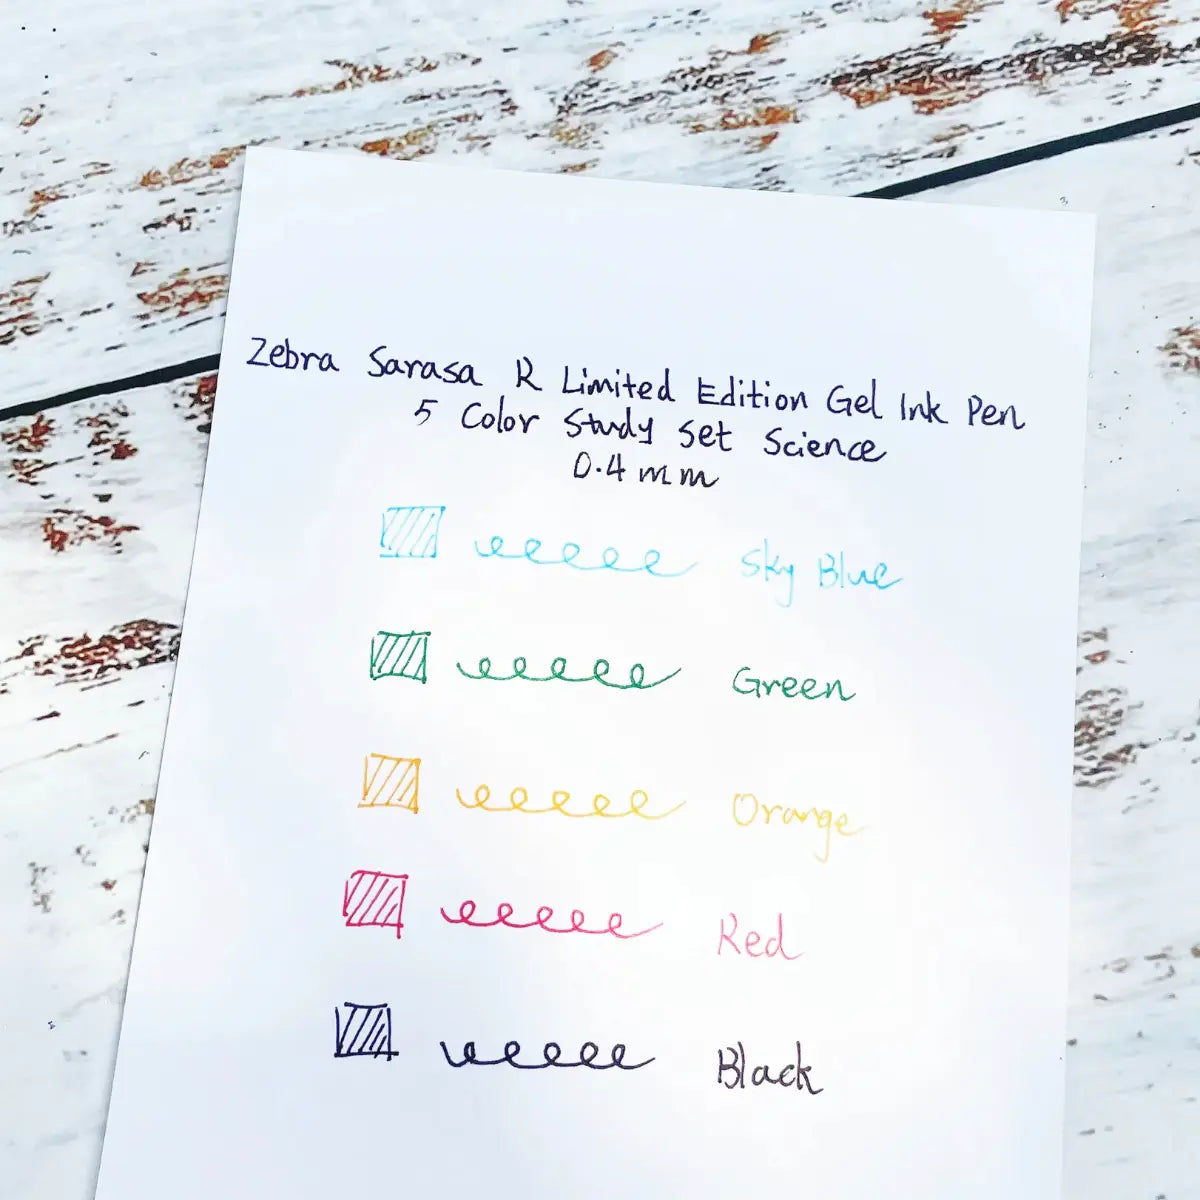 Zebra Sarasa R Limited Edition Gel Ink Pen
5 Color Study Set Science
0.4 mm
Sky Blue
Green
Orange
Red
Black